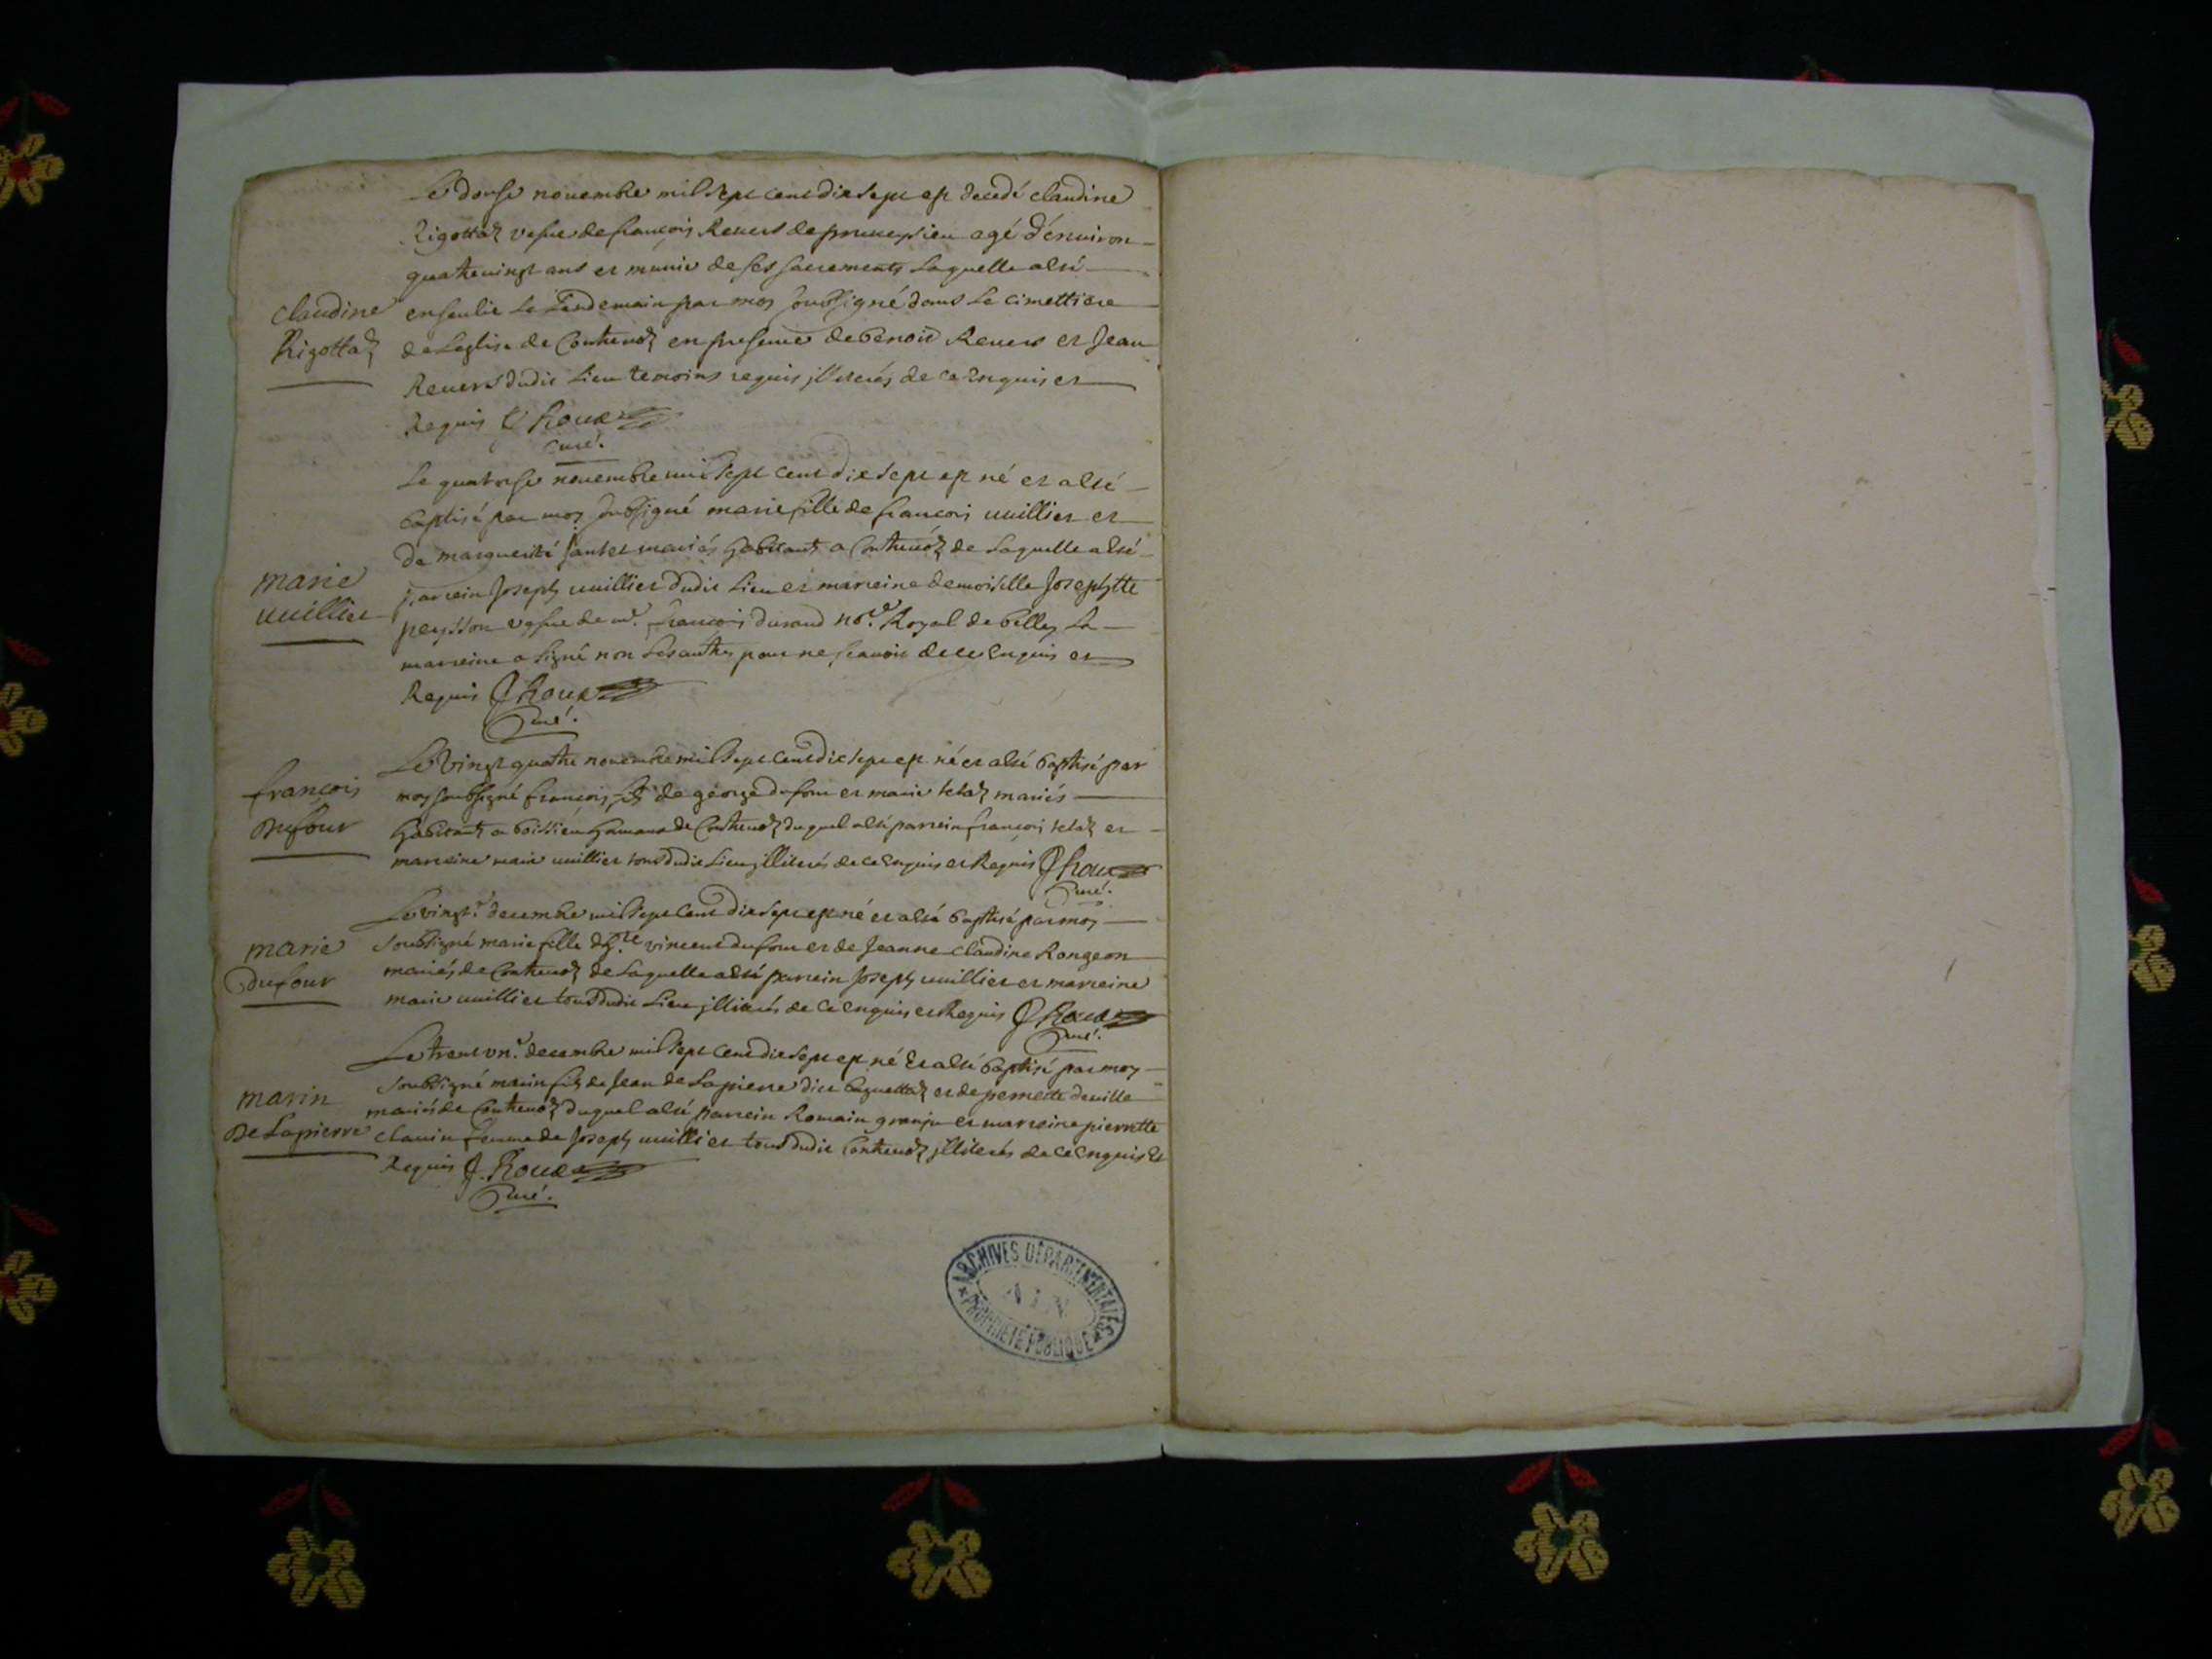 Le douse novembre mil sept cent dix sept est decedé claudine
Rigottaz vefue de francois Reuers de prameyzieu agé d'enuiron
quatrevingt ans et munie de ses sacrements laquelle a été
claudine
Rigottaz
enseulie le lendemain par moy soubsigné dans le cimettiere
de Leglise de Conthenoz en presence de benoit Reuers et Jean
Reuers dudit Lieu temoins requis jlliterés de ce enquis et
Requis J. Roux
curé.
Le quatorse novembre mil sept cent dix sept est né et a été
baptisé par moy soubsigné marie fille de francois uuillier et
de marguerite mariés habitants a Conthenoz de laquelle a été
marie
uuillier
parrein Joseph uuillier dudit Lieu et marreine demoiselle Josephtte
peysson vefue de mr. francois durand nore. Royal de belley la
marreine a signé non les autres pour ne scauoir de ce enquis et
Requis J. Roux
Curé.
Le vingt quatre novembre mil sept cent dix sept est né et a été baptisé par
françois
Dufour
moy soubsigné francois fils de george dufour et marie mariés
habitants a boissieu hameau de Conthenoz duquel a été parrein francois et
marreine marie uuillier tous dudit Lieu jlliterés de ce enquis et Requis J. Roux
Curé.
Le vingte. decembre mil sept cent dix sept est né et a été baptisé par moy
marie
dufour
soubsigné marie fille d'hte vincent dufour et de Jeanne claudine Rongeon
mariés de Conthenoz de laquelle a été parrein Joseph uuillier et marreine
marie uuillier tous dudit Lieu jlliterés de ce enquis et Requis J. Roux
Curé.
Le trent vne. decembre mil sept cent dix sept est né et a été baptisé par moy
marin
De Lapierre
soubsigné marin fils de Jean de Lapierre dit baguettaz et de pernette deuille
mariés de Conthenoz duquel a été parrein Romain granju et marreine pierrette
clauin femme de Joseph uuillier tous dudit Conthenoz jlliterés de ce enquis et
Requis J. Roux
Curé.
ARCHIVES DÉPARTEMENTALES
AIN
PROPRIÉTÉ PUBLIQUE